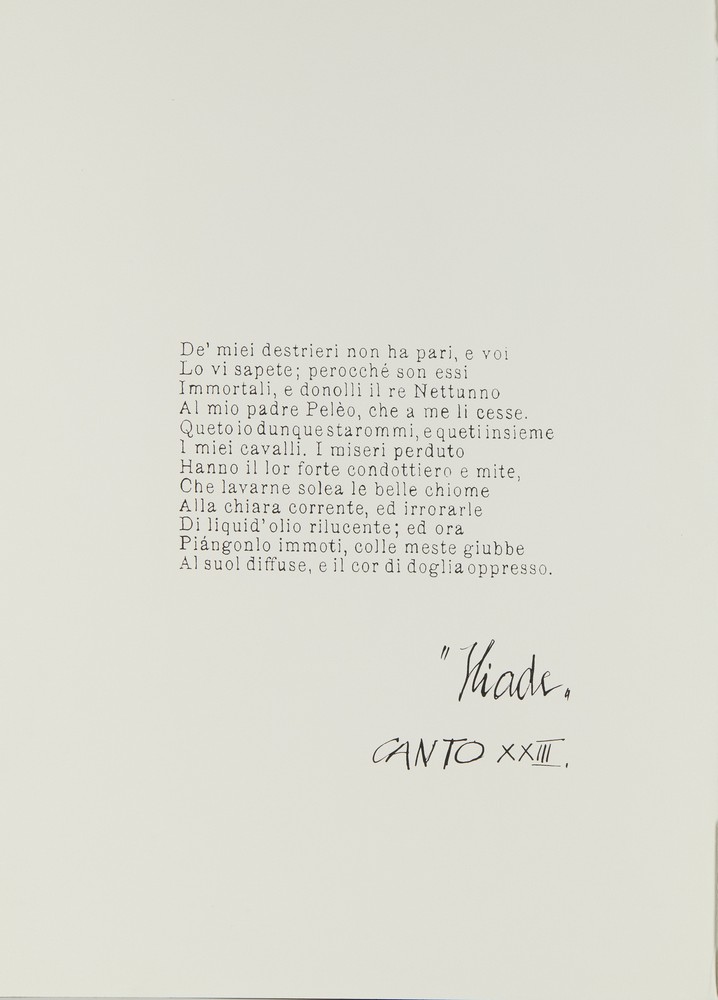 De' miei destrieri non ha pari, e voi
Lo vi sapete; perocché son essi
Immortali, e donolli il re Nettunno
Al mio padre Pelèo, che a me li cesse.
Queto io dunque starommi, e queti insieme
I miei cavalli. I miseri perduto
Hanno il lor forte condottiero e mite,
Che lavarne solea le belle chiome
Alla chiara corrente, ed irrorarle
Di liquid' olio rilucente; ed ora
Piángonlo immoti, colle meste giubbe
Al suol diffuse, e il cor di doglia oppresso.
"Iliade"
CANTO XXIII.